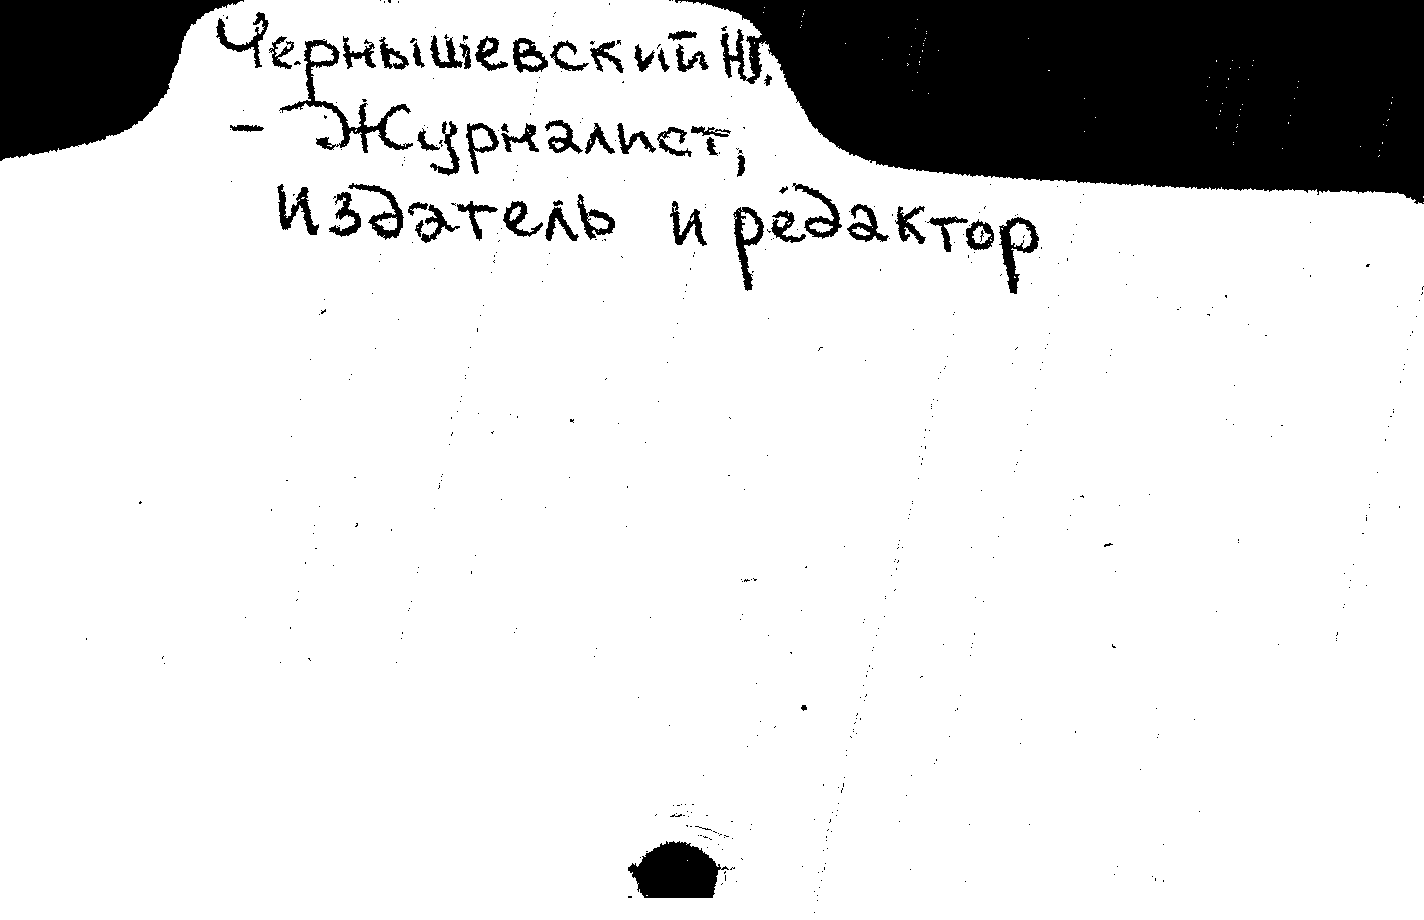 Чернышевский НГ.
- Журналист,
издатель и редактор